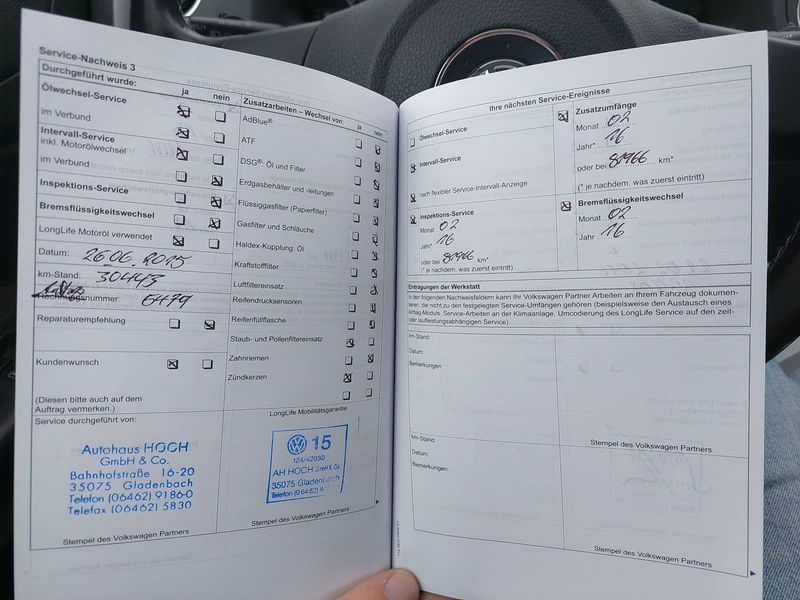 Service-Nachweis 3
Durchgeführt wurde:
ja
nein
Ölwechsel-Service
im Verbund
Intervall-Service
inkl. Motorölwechsel
im Verbund
Inspektions-Service
Bremsflüssigkeitswechsel
LongLife Motoröl verwendet
Datum: 26.06.2015
km-Stand: 30443
Rechnungsnummer: 6479
Reparaturempfehlung
Kundenwunsch
(Diesen bitte auch auf dem
Auftrag vermerken.)
Service durchgeführt von:
Autohaus HOCH
GmbH & Co.
Bahnhofstraße 16-20
35075 Gladenbach
Telefon (06462) 9186-0
Telefax (06462) 5830
Stempel des Volkswagen Partners
Zusatzarbeiten – Wechsel von:
ja
nein
AdBlue®
ATF
DSG®- Öl und Filter
Erdgasbehälter und -leitungen
Flüssiggasfilter (Papierfilter)
Gasfilter und Schläuche
Haldex-Kupplung: Öl
Kraftstofffilter
Luftfiltereinsatz
Reifendrucksensoren
Reifenfüllflasche
Staub- und Pollenfiltereinsatz
Zahnriemen
Zündkerzen
LongLife Mobilitätsgarantie
15
124/42030
AH HOCH GmbH & Co.
35075 Gladenbach
Telefon (06462) 9
Stempel des Volkswagen Partners
Ihre nächsten Service-Ereignisse
Ölwechsel-Service
Intervall-Service
nach flexibler Service-Intervall-Anzeige
Inspektions-Service
Monat 02
Jahr* 16
oder bei 81966 km*
(* je nachdem, was zuerst eintritt)
Zusatzumfänge
Monat 02
Jahr* 16
oder bei 81966 km*
(* je nachdem, was zuerst eintritt)
Bremsflüssigkeitswechsel
Monat 02
Jahr 16
Eintragungen der Werkstatt
In den folgenden Nachweisfeldern kann Ihr Volkswagen Partner Arbeiten an Ihrem Fahrzeug dokumen-
tieren, die nicht zu den festgelegten Service-Umfängen gehören (beispielsweise den Austausch eines
Airbag-Moduls, Service-Arbeiten an der Klimaanlage, Umcodierung des LongLife Service auf den zeit-
oder laufleistungsabhängigen Service).
km-Stand:
Datum:
Bemerkungen:
Stempel des Volkswagen Partners
km-Stand
Datum:
Bemerkungen:
Stempel des Volkswagen Partners